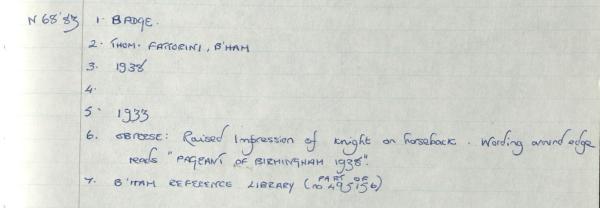 N 68'83 1. BADGE.
2. THOM. FATTORINI, B'HAM
3. 1938
4.
5. 1933
6. OBVERSE: Raised Impression of Knight on horseback. Wording around edge
reads "PAGEANT OF BIRMINGHAM 1938".
7. B'HAM REFERENCE LIBRARY (PART OF no. 495156)